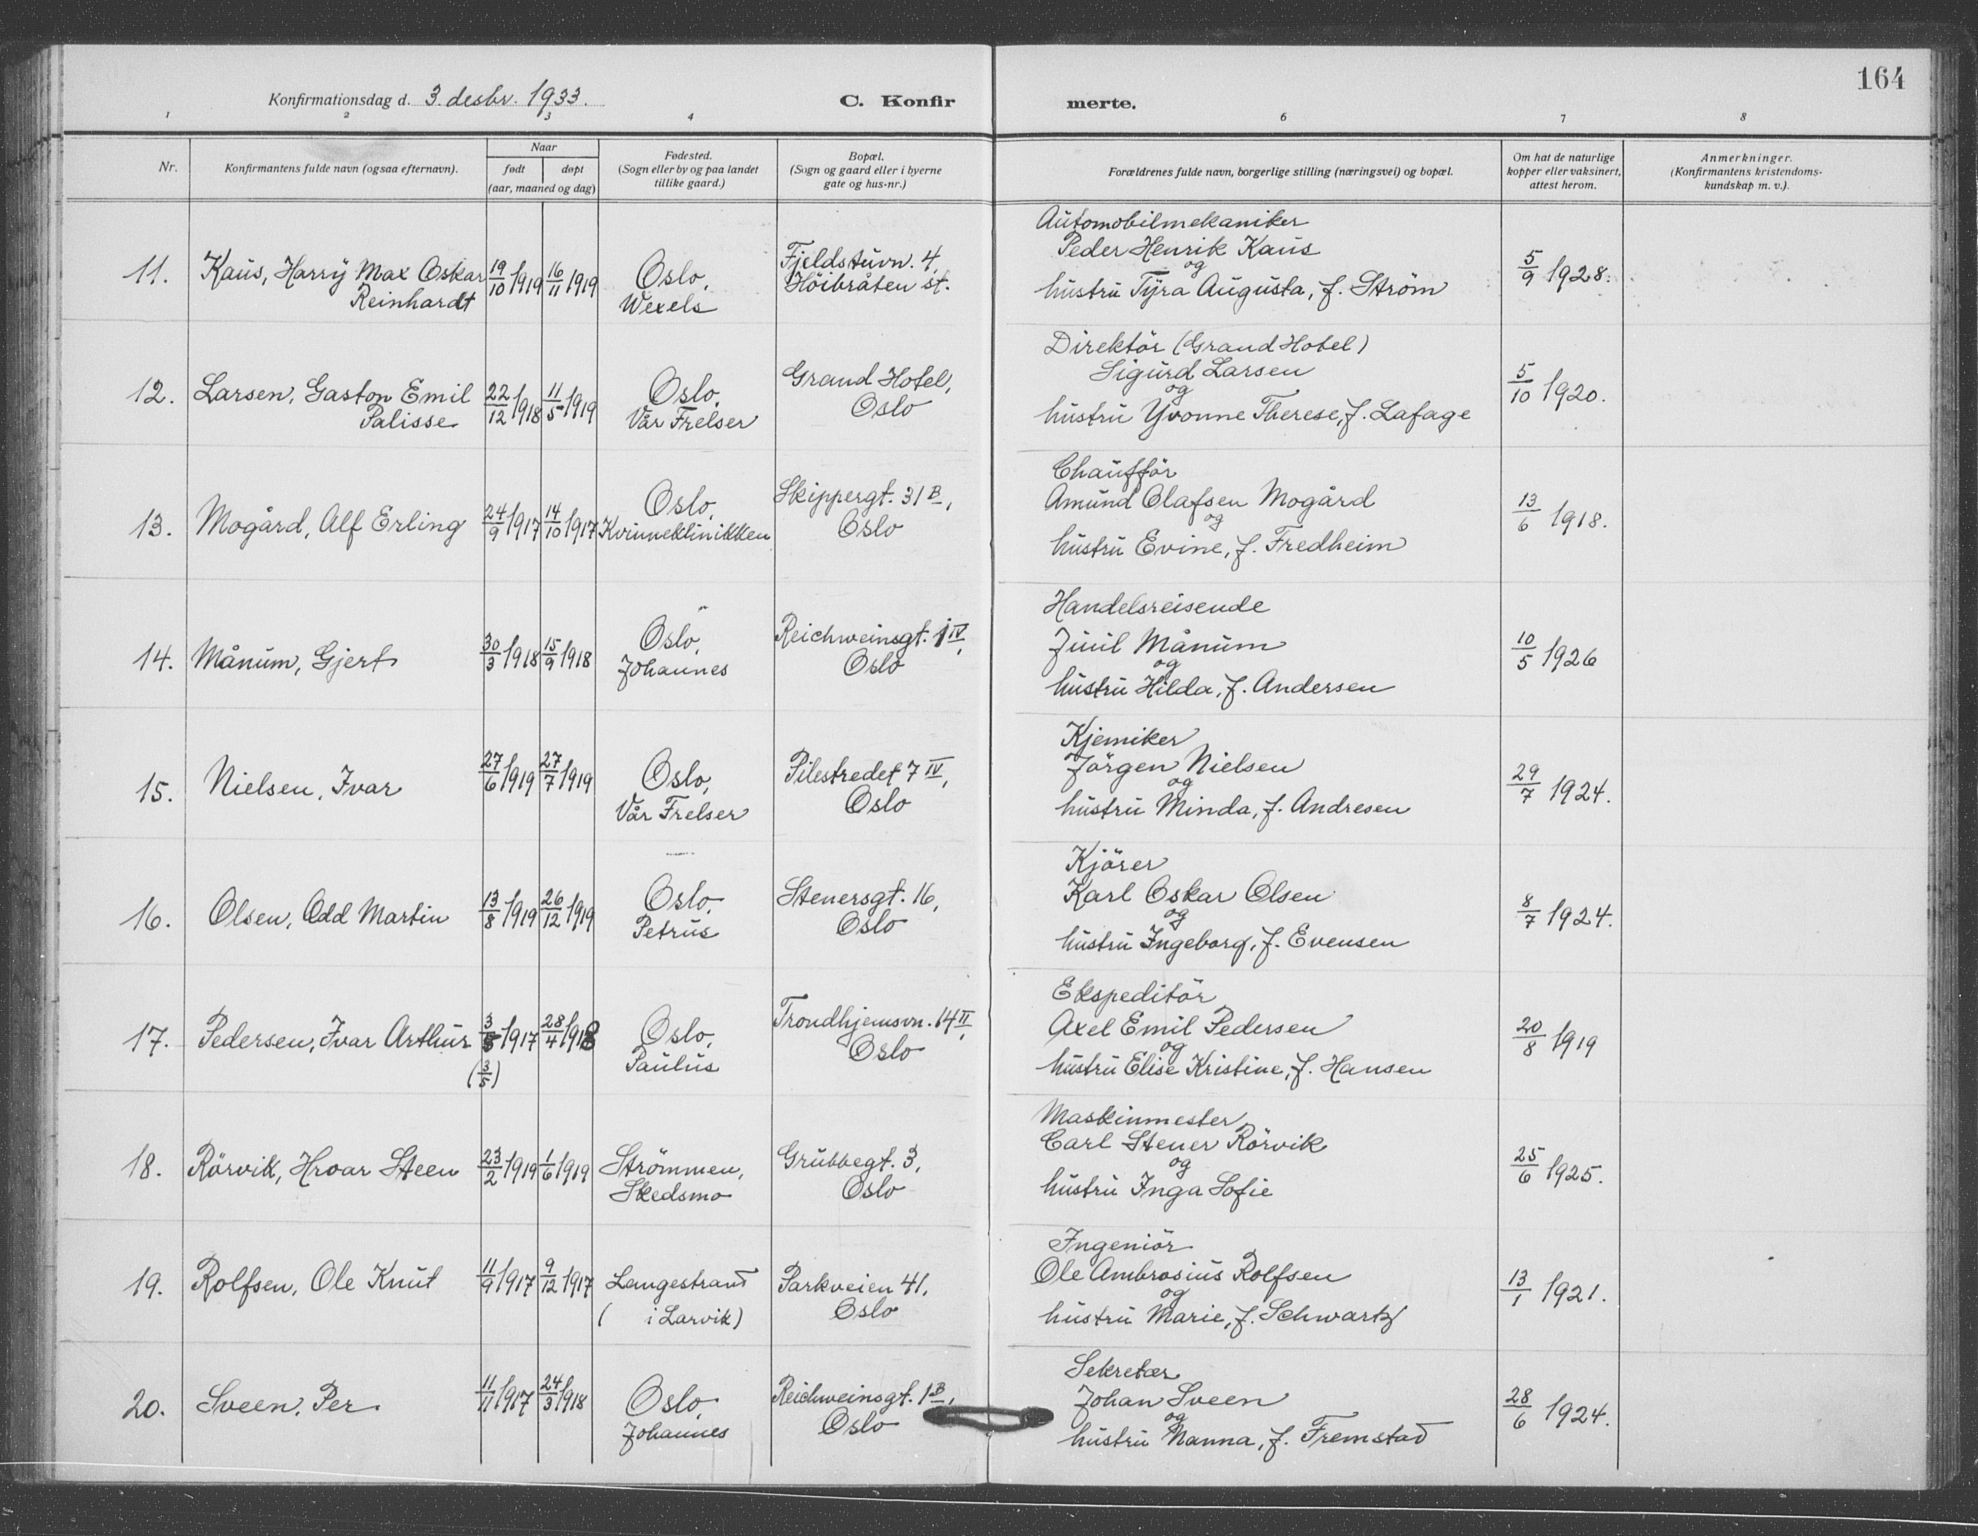 164
Konfirmationsdag d. 3. desbr. 1933.
C. Konfir
merte.
1 2 3 4 6 7 8
Nr.
Konfirmantens fulde navn (ogsaa efternavn).
Naar
født
døpt
(aar, maaned og dag)
Fødested.
(Sogn eller by og paa landet
tillike gaard.)
Bopæl.
(Sogn og gaard eller i byerne
gate og hus-nr.)
Forældrenes fulde navn, borgerlige stilling (næringsvei) og bopæl.
Om hat de naturlige
kopper eller vaksinert,
attest herom.
Anmerkninger.
(Konfirmantens kristendoms-
kundskap m. v.).
11.
Kaus, Harry Max Oskar
Reinhardt
19/10 1919
16/11 1919
Oslo,
Wexels
Fjeldstuvn. 4,
Höibråten st.
Automobilmekaniker
Peder Henrik Kaus
og
hustru Tyra Augusta, f. Ström
5/9 1928.
12.
Larsen, Gaston Emil
Palisse
22/12 1918
11/5 1919
Oslo,
Vår Frelser
Grand Hotel,
Oslo
Direktör (Grand Hotel)
Sigurd Larsen
og
hustru Yvonne Therese, f. Lafage
5/10 1920.
13.
Mogård, Alf Erling
24/9 1917
14/10 1917
Oslo,
Kvinneklinikken
Skippergt. 31 B,
Oslo
Chaufför
Amund Olafsen Mogård
og
hustru Evine, f. Fredheim
13/6 1918.
14.
Månum, Gjert
30/3 1918
15/9 1918
Oslo,
Johannes
Reichweinsgt. 1 IV,
Oslo
Handelsreisende
Juul Månum
og
hustru Hilda, f. Andersen
10/5 1926
15.
Nielsen, Ivar
27/6 1919
27/7 1919
Oslo,
Vår Frelser
Pilestredet 7 IV,
Oslo
Kjemiker
Jörgen Nielsen
og
hustru Minda, f. Andresen
29/7 1924.
16.
Olsen, Odd Martin
13/8 1919
26/12 1919
Oslo,
Petrus
Stenersgt. 16,
Oslo
Kjörer
Karl Oskar Olsen
og
hustru Ingeborg, f. Evensen
8/7 1924.
17.
Pedersen, Ivar Arthur
3/5 1917
(3/5)
28/4 1918
Oslo,
Paulus
Trondhjemsvn. 14 II,
Oslo
Ekspeditör
Axel Emil Pedersen
og
hustru Elise Kristine, f. Hansen
20/8 1919
18.
Rörvik, Hroar Steen
23/2 1919
1/6 1919
Strömmen,
Skedsmo
Grubbegt. 3,
Oslo
Maskinmester
Carl Stener Rörvik
og
hustru Inga Sofie
25/6 1925.
19.
Rolfsen, Ole Knut
11/9 1917
9/12 1917
Langestrand
( i Larvik)
Parkveien 41,
Oslo
Ingeniör
Ole Ambrosius Rolfsen
og
hustru Marie, f. Schwartz
13/1 1921.
20.
Sveen, Per
11/11 1917
24/3 1918
Oslo,
Johannes
Reichweinsgt. 1 B,
Oslo
Sekretær
Johan Sveen
og
hustru Nanna, f. Fremstad
28/6 1924.